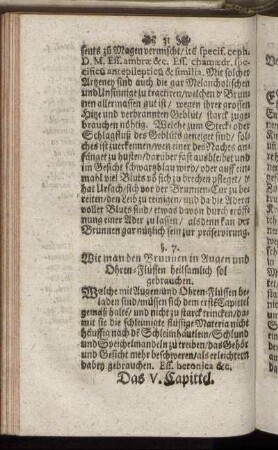 51
sents zu Magen vermischt / itē specif. ceph.
D. M. Ess. ambræ &c. Ess. chamædr. spe-
cificū antepilepticū & similia. Mit solchen
Artzeney sind auch die gar Melancholischen
und Unsinnige zu tractiren / welchen d' Brun
nen allermassen gut ist / wegen ihrer grossen
Hitz und verbrannten Geblüts starck zuge-
brauchen nöhtig. Welche zum Steck- oder
Schlagfluß des Geblüts geneigt sind / sol-
ches ist zuerkennen / wen einer des Nachts an-
fänget zu husten / darüber fast ausbleibet und
im Gesicht schwartzblau wird / oder auff ein-
mahl viel Bluts vō sich zu brechen pfleget / d'
hat Uesach / sich vor der Brunnen-Cur zu berei-
ten / den Leib zu reinigen / und da die Adern
voller Bluts sind / etwas davon durch eröff-
nung einer Ader zu lassen / alsdenn kan der
Brunnen gar nützlich sein zur præservirung.
§. 7.
Wie man den Brunnen in Augen und
Ohren-Flüssen heilsamlich sol
gebrauchen.
Welche mit Augen und Ohren-Flüssen be-
laden sind / müssen sich dem erstē Capittel
gemäß halte / und nicht zu starck trincken / da-
mit sie die schleimigte flüssige Materia nicht
häuffig nach dē Schleimhäutlein / Schlund
und Speichelmandeln zu treiben / das Gehör
und Gesicht mehr beschweren / als erleichtern
dabey gebrauchen. Ess. betonica &c.
Das V. Capittel.